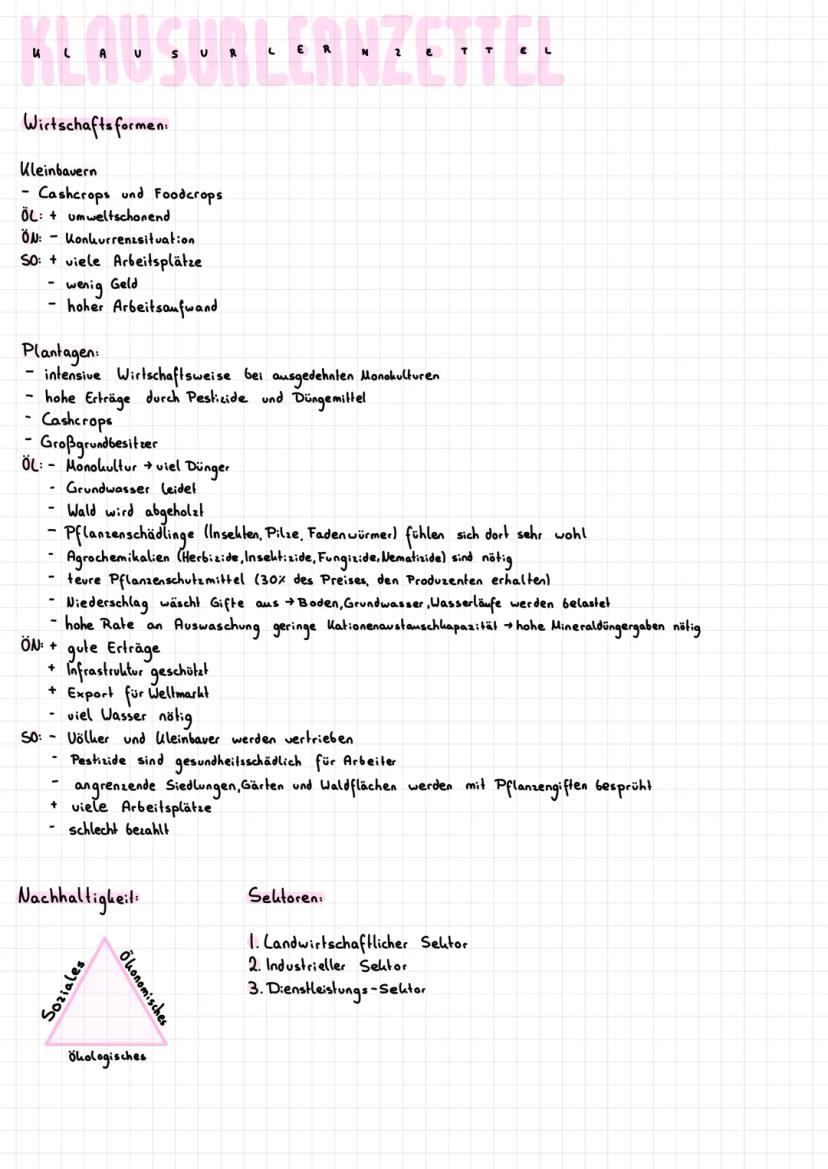 KLAUSURLERNZETTEL
Wirtschaftsformen:
Kleinbauern
- Cashcrops und Foodcrops
ÖL: + umweltschonend
ÖN: - Konkurrenzsituation
SO: + viele Arbeitsplätze
- wenig Geld
- hoher Arbeitsaufwand
Plantagen:
- intensive Wirtschaftsweise bei ausgedehnten Monokulturen
- hohe Erträge durch Pestizide und Düngemittel
- Cashcrops
- Großgrundbesitzer
ÖL: - Monokultur → viel Dünger
- Grundwasser leidet
- Wald wird abgeholzt
- Pflanzenschädlinge (Insekten, Pilze, Fadenwürmer) fühlen sich dort sehr wohl
- Agrochemikalien (Herbizide, Insektizide, Fungizide, Nematizide) sind nötig
- teure Pflanzenschutzmittel (30% des Preises, den Produzenten erhalten)
- Niederschlag wäscht Gifte aus → Boden, Grundwasser, Wasserläufe werden belastet
- hohe Rate an Auswaschung geringe Kationenaustauschkapazität → hohe Mineraldüngergaben nötig
ÖN: + gute Erträge
+ Infrastruktur geschützt
+ Export für Weltmarkt
- viel Wasser nötig
SO: - Völker und Kleinbauer werden vertrieben
- Pestizide sind gesundheitsschädlich für Arbeiter
- angrenzende Siedlungen, Gärten und Waldflächen werden mit Pflanzengiften besprüht
+ viele Arbeitsplätze
- schlecht bezahlt
Nachhaltigkeit:
Soziales
Ökonomisches
Ökologisches
Sektoren:
1. Landwirtschaftlicher Sektor
2. Industrieller Sektor
3. Dienstleistungs-Sektor